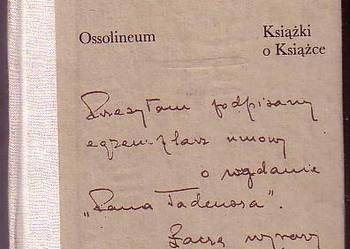 Ossolineum
Książki
o Książce
Przesyłam podpisany
egzemplarz umowy
o wydanie
„Pana Tadeusza".
Łączę wyrazy